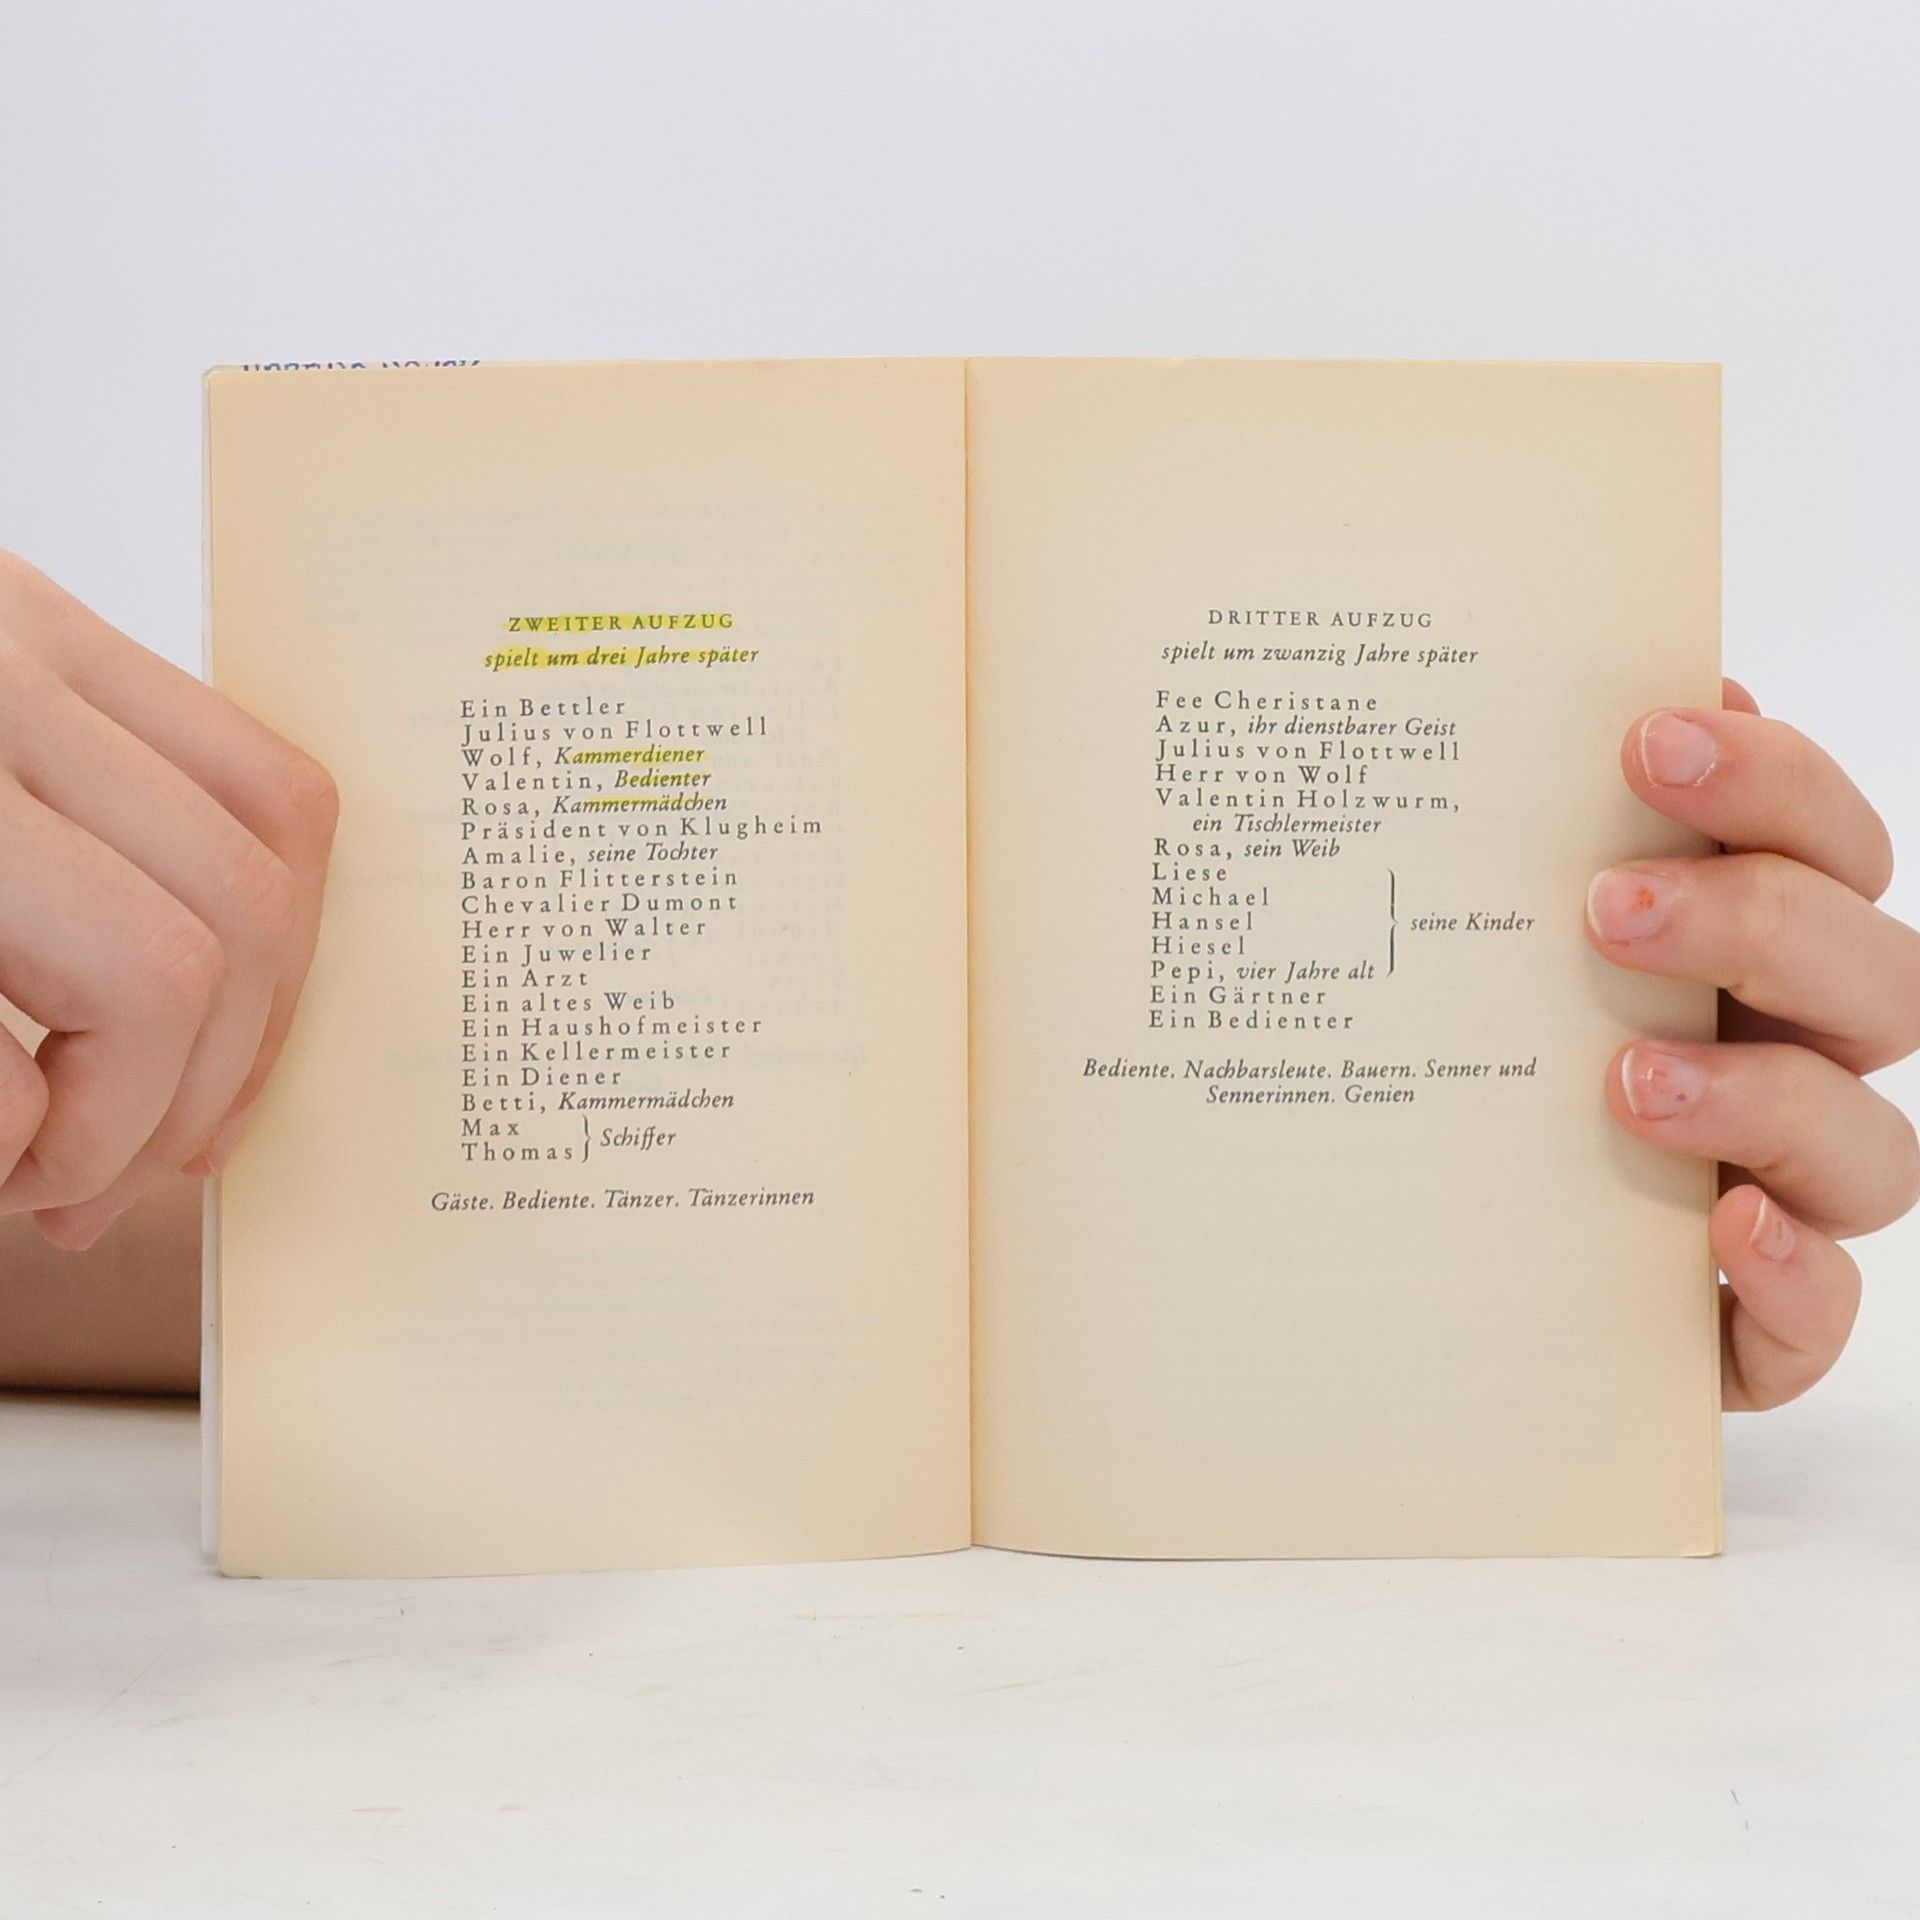 ZWEITER AUFZUG
spielt um drei Jahre später
Ein Bettler
Julius von Flottwell
Wolf, Kammerdiener
Valentin, Bedienter
Rosa, Kammermädchen
Präsident von Klugheim
Amalie, seine Tochter
Baron Flitterstein
Chevalier Dumont
Herr von Walter
Ein Juwelier
Ein Arzt
Ein altes Weib
Ein Haushofmeister
Ein Kellermeister
Ein Diener
Betti, Kammermädchen
Max
Thomas } Schiffer
Gäste. Bediente. Tänzer. Tänzerinnen
DRITTER AUFZUG
spielt um zwanzig Jahre später
Fee Cheristane
Azur, ihr dienstbarer Geist
Julius von Flottwell
Herr von Wolf
Valentin Holzwurm,
ein Tischlermeister
Rosa, sein Weib
Liese
Michael
Hansel } seine Kinder
Hiesel
Pepi, vier Jahre alt
Ein Gärtner
Ein Bedienter
Bediente. Nachbarsleute. Bauern. Senner und
Sennerinnen. Genien